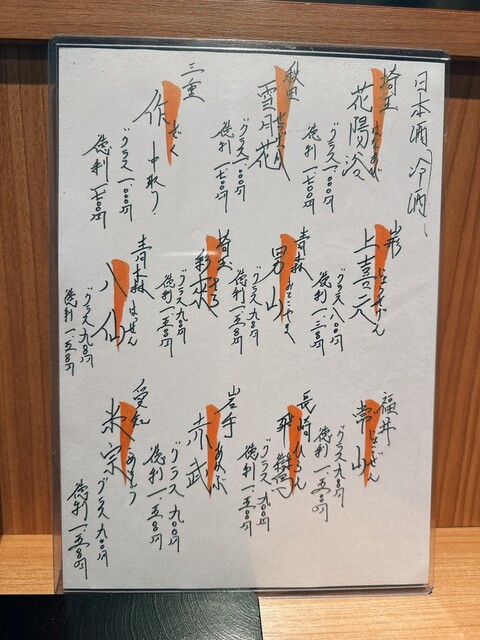 日本酒 冷酒
埼玉
花陽浴
はなあび
グラス 一、〇〇〇円
徳利 一、七〇〇円
秋田
雪月花
グラス 一、〇〇〇円
徳利 一、七〇〇円
三重
作
ざく
中取り
グラス 一、〇〇〇円
徳利 一、七〇〇円
山形
上喜元
じょうきげん
グラス 八〇〇円
徳利 一、三〇〇円
青森
男山
グラス 九〇〇円
徳利 一、五〇〇円
埼玉
彩來
グラス 九〇〇円
徳利 一、五〇〇円
青森
八仙
はっせん
グラス 九〇〇円
徳利 一、五〇〇円
福井
常山
じょうざん
グラス 九〇〇円
徳利 一、五〇〇円
長崎
飛鸞
ひらん
グラス 九〇〇円
徳利 一、五〇〇円
岩手
赤武
あかぶ
グラス 九〇〇円
徳利 一、五〇〇円
愛知
米宗
グラス 九〇〇円
徳利 一、五〇〇円